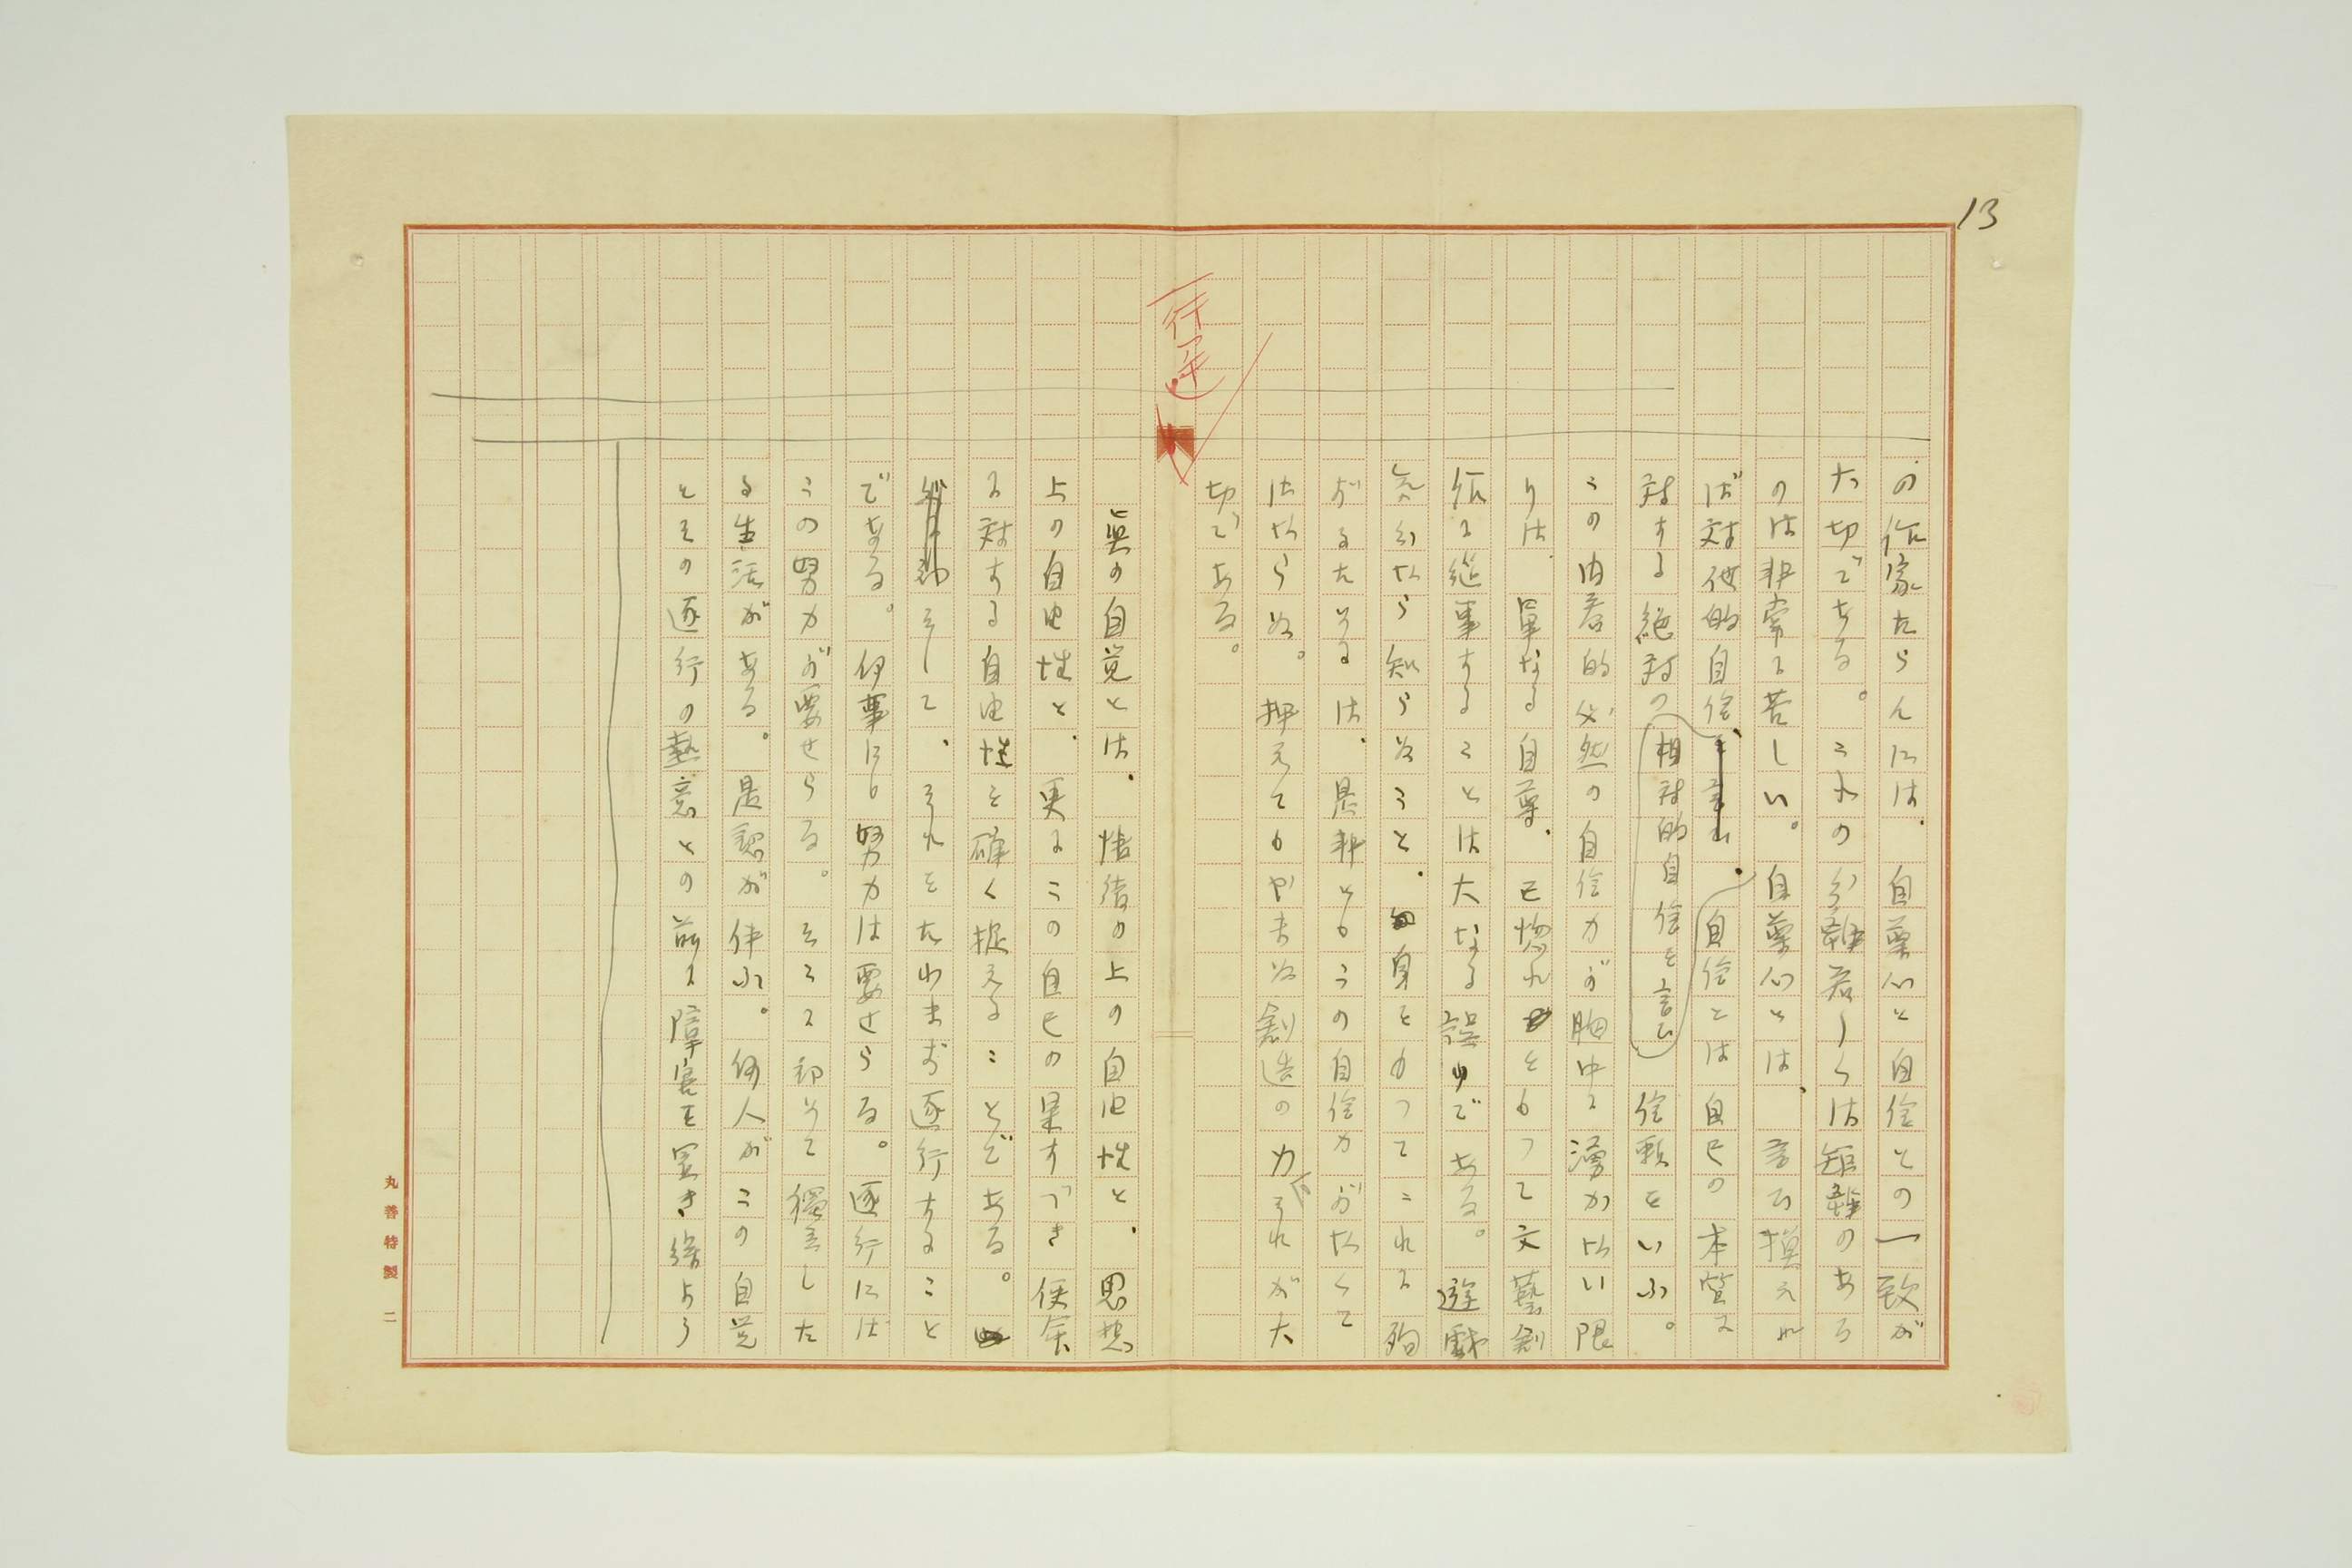 13
の作家たらんには、自尊心と自信との一致が
大切である。この分離若しくは距離のある
のは非常に苦しい。自尊心とは、言ひ換えれ
ば対他的自信、自信とは自己の本質に
対する絶対の信頼をいふ。
相対的自信を言ひ
この内容的必然の自信力が胸中に湧かない限
りは、単なる自尊、己惚れをもつて文藝創
作に従事することは大なる誤りである。遊戯
気分なら知らぬこと、身をもつてこれに殉
がるためには、是非ともこの自信力がなくて
はならぬ。押えてもやまぬ創造の力、それが大
切である。
行運
眞の自覚とは、情緒の上の自由性と、思想
上の自由性と、更にこの自己の果すべき使命
に対する自由性を確く捉えることである。
そして、それをたわまず遂行すること
である。何事にも努力は要せらる。遂行には
この努力が要せらる。そこに却つて獨立した
る生活がある。是認が伴ふ。何人がこの自覚
とその遂行の熱意との前に障害を置き得よう
丸善特製 二